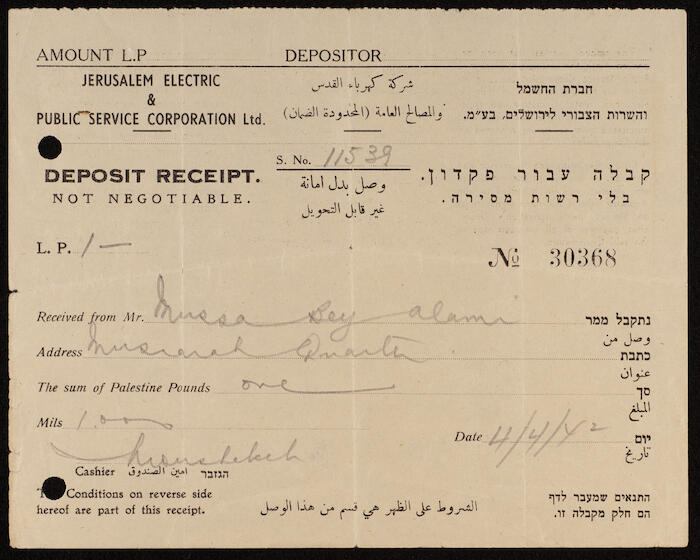 AMOUNT L.P DEPOSITOR
JERUSALEM ELECTRIC
&
PUBLIC SERVICE CORPORATION Ltd.
شركة كهرباء القدس
والمصالح العامة (المحدودة الضمان)
חברת החשמל
והשרות הצבורי לירושלים, בע״מ.
DEPOSIT RECEIPT.
NOT NEGOTIABLE.
S. No. 11539
وصل بدل امانة
غير قابل التحويل
קבלה עבור פקדון.
בלי רשות מסירה.
L. P. 1—
No 30368
Received from Mr. Mussa Bey Alami נתקבל ממר
وصل من
Address Musrarah Quarter כתבת
عنوان
The sum of Palestine Pounds one סך
المبلغ
Mils 1.000
Date 4/4/42 יום
تاريخ
Cashier امين الصندوق הגזבר
The Conditions on reverse side
hereof are part of this receipt.
الشروط على الظهر هي قسم من هذا الوصل
התנאים שמעבר לדף
הם חלק מקבלה זו.